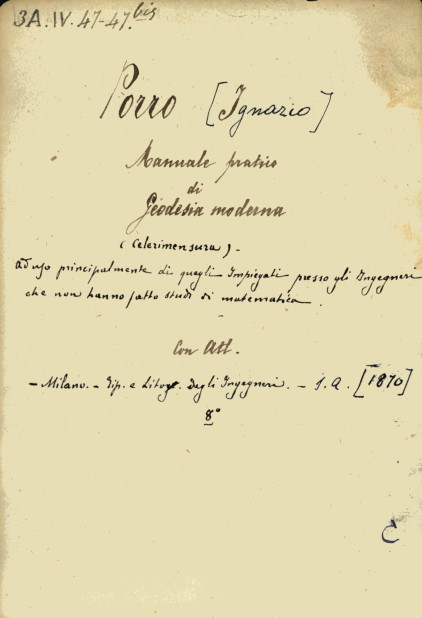 3A.IV. 47-47.bis
Porro [Ignazio]
Manuale pratico
di
Geodesia moderna
(Celerimensura) -
ad uso principalmente di quegli Impiegati presso gli Ingegneri
che non hanno fatto studi di matematica.
Con Atl.
- Milano. - Tip. e Litogr. degli Ingegneri. - S. A. [1870]
8°